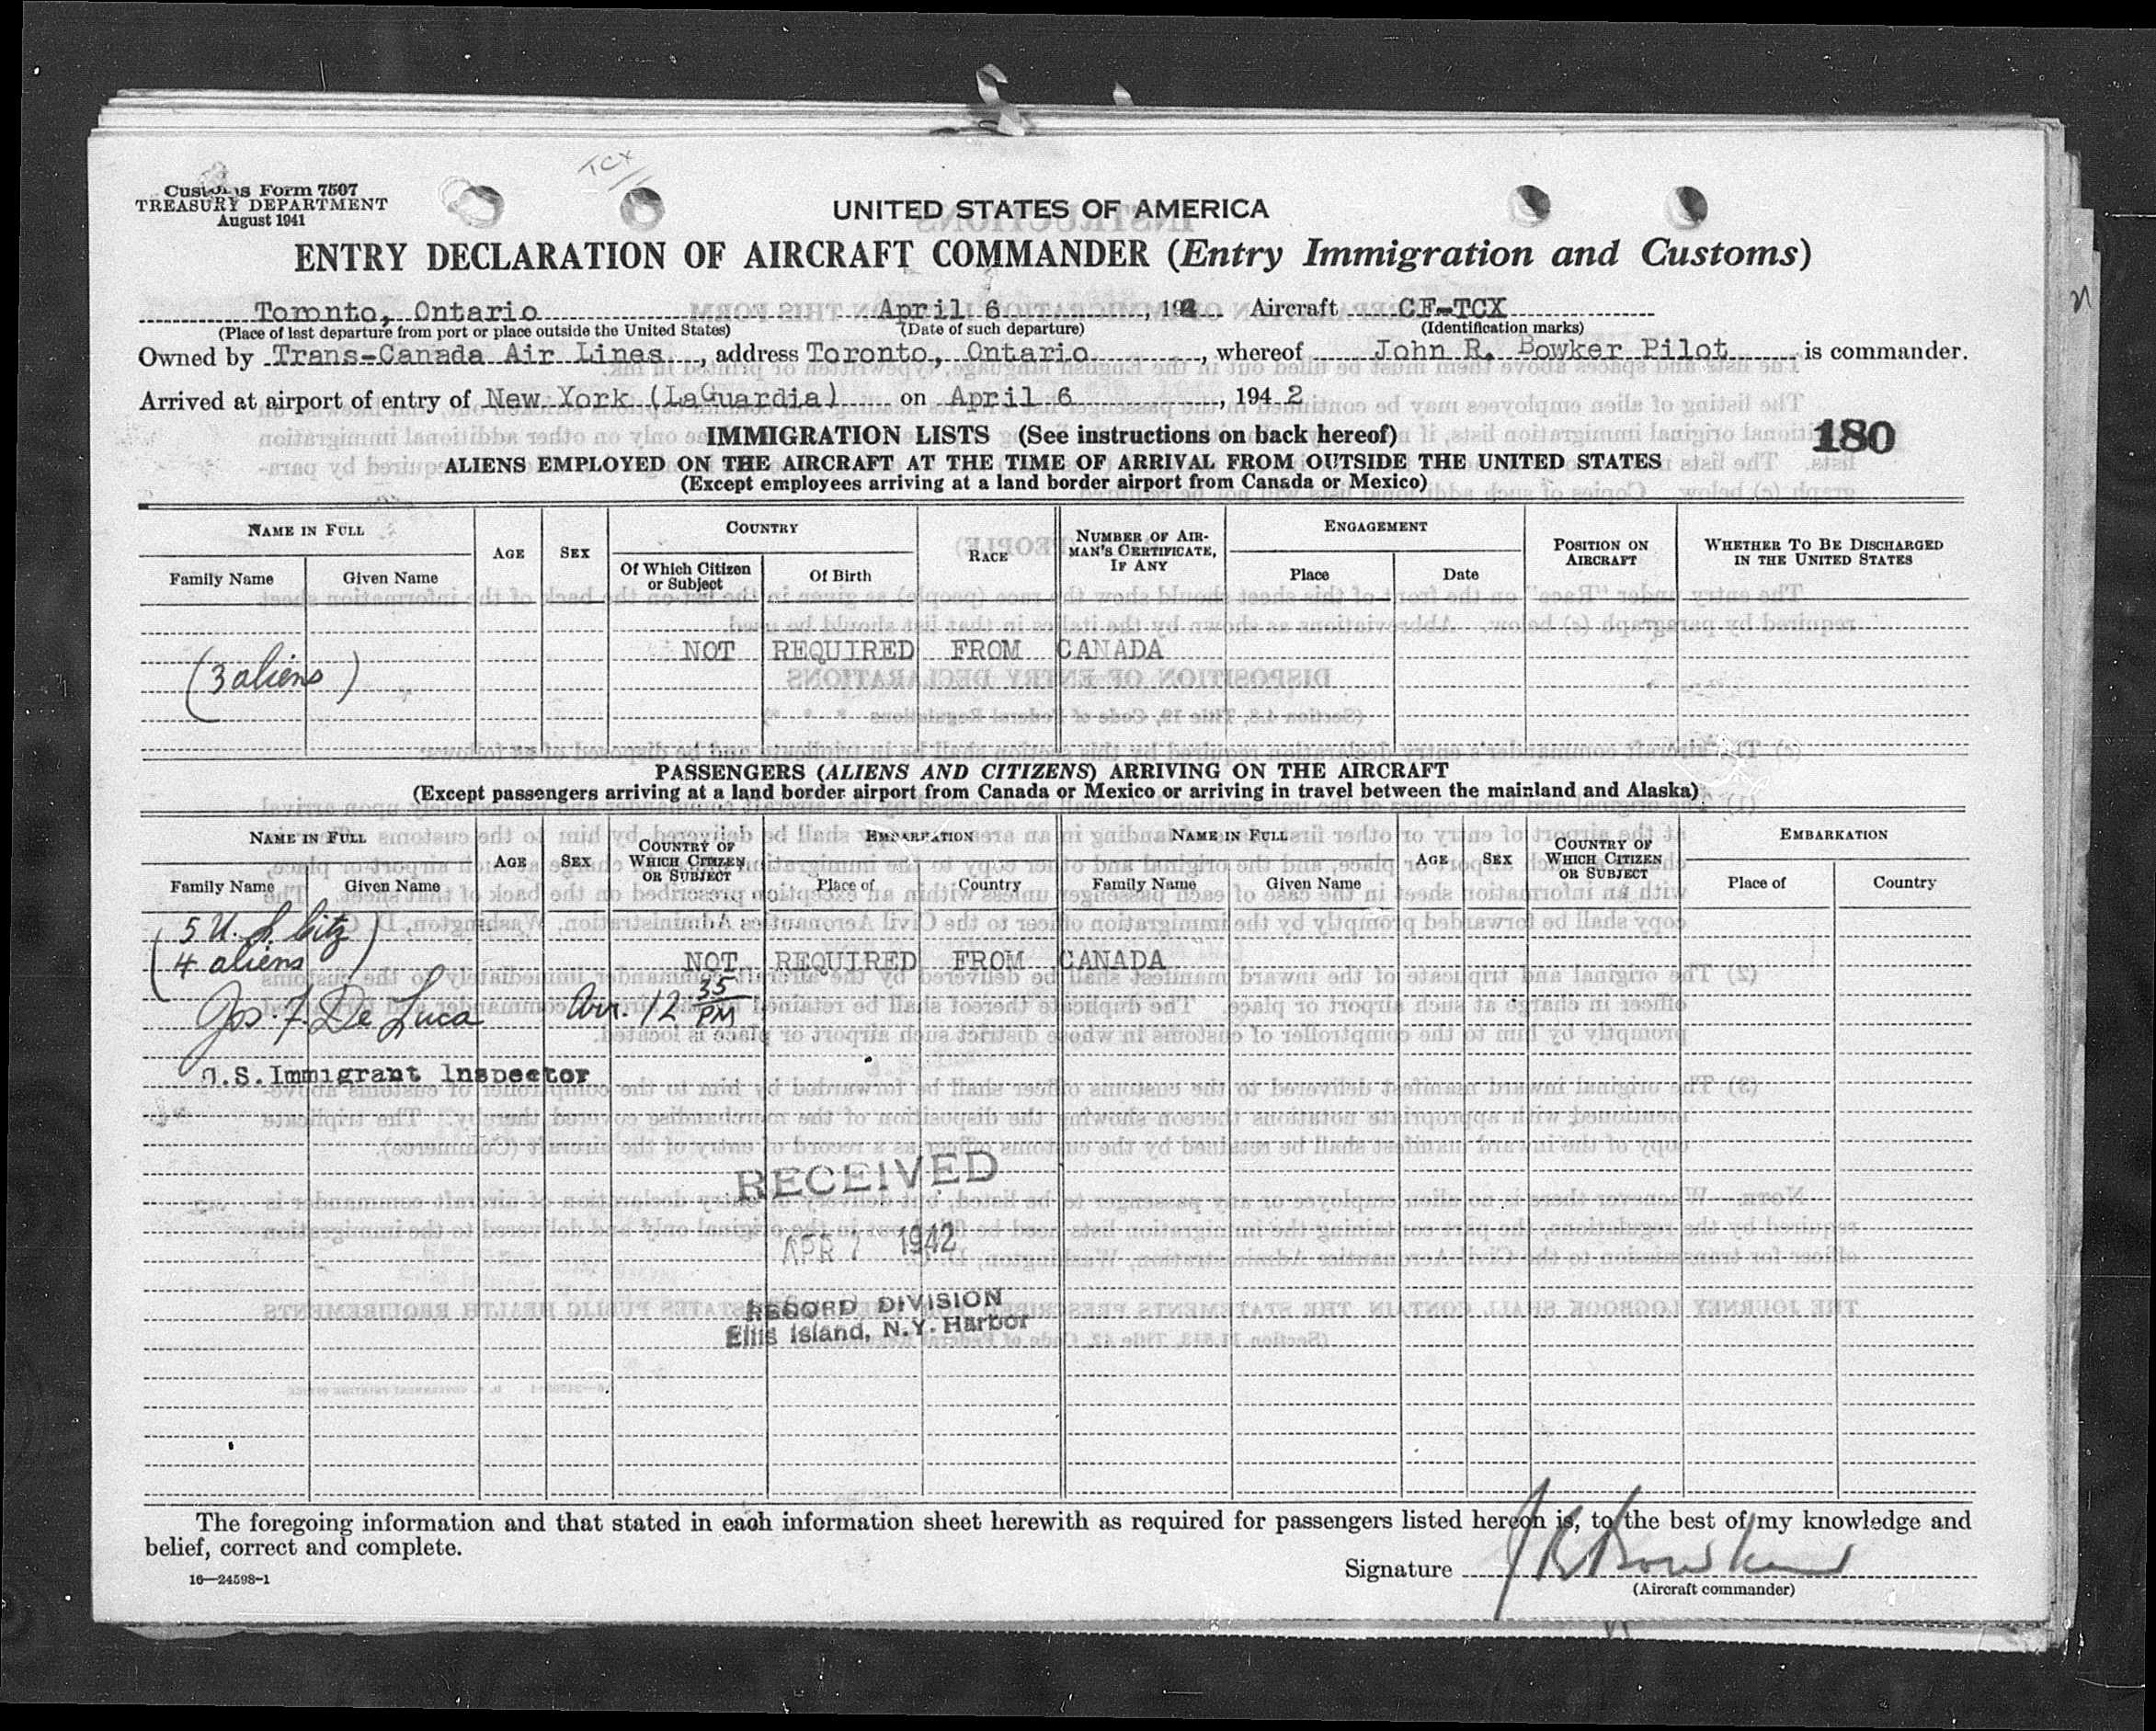 TCX
Customs Form 7507
TREASURY DEPARTMENT
August 1941
UNITED STATES OF AMERICA
ENTRY DECLARATION OF AIRCRAFT COMMANDER (Entry Immigration and Customs)
Toronto, Ontario April 6, 1942 Aircraft CF-TCX
(Place of last departure from port or place outside the United States) (Date of such departure) (Identification marks)
Owned by Trans-Canada Air Lines, address Toronto, Ontario, whereof John R. Bowker Pilot is commander.
Arrived at airport of entry of New York (LaGuardia) on April 6, 1942
IMMIGRATION LISTS (See instructions on back hereof)
180
ALIENS EMPLOYED ON THE AIRCRAFT AT THE TIME OF ARRIVAL FROM OUTSIDE THE UNITED STATES
(Except employees arriving at a land border airport from Canada or Mexico)
NAME IN FULL AGE SEX COUNTRY RACE NUMBER OF AIRMAN'S CERTIFICATE, IF ANY ENGAGEMENT POSITION ON AIRCRAFT WHETHER TO BE DISCHARGED IN THE UNITED STATES
Family Name Given Name Of Which Citizen or Subject Of Birth Place Date
NOT REQUIRED FROM CANADA
(3 aliens)
PASSENGERS (ALIENS AND CITIZENS) ARRIVING ON THE AIRCRAFT
(Except passengers arriving at a land border airport from Canada or Mexico or arriving in travel between the mainland and Alaska)
NAME IN FULL AGE SEX COUNTRY OF WHICH CITIZEN OR SUBJECT EMBARKATION NAME IN FULL AGE SEX COUNTRY OF WHICH CITIZEN OR SUBJECT EMBARKATION
Family Name Given Name Place of Country Family Name Given Name Place of Country
(5 U. S. Citz
4 aliens)
NOT REQUIRED FROM CANADA
Jos. F. De Luca Arr. 12 35 PM
U.S. Immigrant Inspector
RECEIVED
APR 7 1942
RECORD DIVISION
Ellis Island, N.Y. Harbor
The foregoing information and that stated in each information sheet herewith as required for passengers listed hereon is, to the best of my knowledge and
belief, correct and complete.
Signature J R Bowker
(Aircraft commander)
16—24598-1